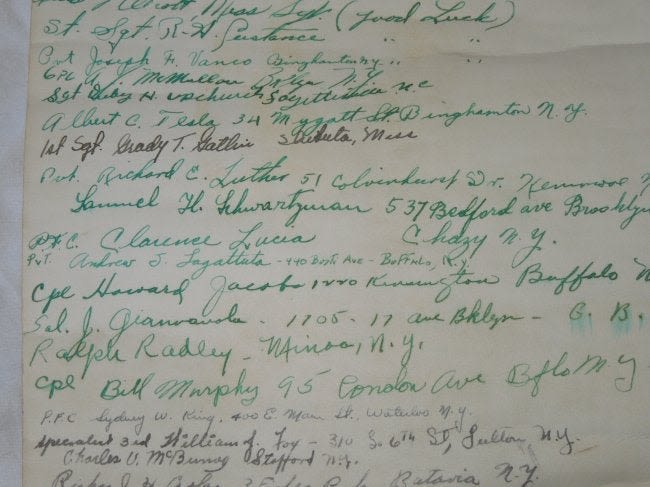 Miss Sgt. (Good Luck)
St. Sgt. R. H. Sustance " "
Pvt Joseph F. Vanco Binghamton NY " "
CPL McMullan N.Y.
Sgt H. Upchurch Fayetteville N.C
Albert C. Tesla 34 Mygatt St Binghamton N.Y.
1st Sgt. Grady T. Gatlin Shubuta, Miss
Pvt. Richard E. Luther 51 Colvinhurst Dr. Kenmore
Samuel H. Schwartzman 537 Bedford ave Brooklyn
P.F.C. Clarence Lucia Chazy N.Y.
Pvt. Andrew J. Lagattuta - 440 Ave - Buffalo, N.Y.
Cpl Howard Jacobs Kensington Buffalo N
Sal. J. - 1705 - 17 ave Bklyn - G. B.
Ralph Radley - Minoa, N.Y.
Cpl Bill Murphy 95 London Ave Bflo N Y
P.F.C Sydney W. King, 400 E. Main St., Waterloo N.Y.
Specialist 3rd William J. Fox - 310 So 6TH St, Fulton, N.Y.
Charles V. McBurney Stafford N.Y.
Richard H. Batavia N.Y.